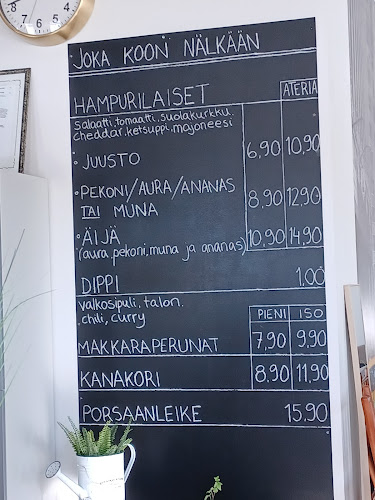 JOKA KOON NÄLKÄÄN
HAMPURILAISET ATERIA
salaatti, tomaatti, suolakurkku,
cheddar, ketsuppi, majoneesi
• JUUSTO 6,90 10,90
• PEKONI/AURA/ANANAS
TAI MUNA 8,90 12,90
• ÄIJÄ 10,90 14,90
(aura, pekoni, muna ja ananas)
DIPPI 1,00
valkosipuli, talon,
chili, curry
PIENI ISO
MAKKARAPERUNAT 7,90 9,90
KANAKORI 8,90 11,90
PORSAANLEIKE 15,90